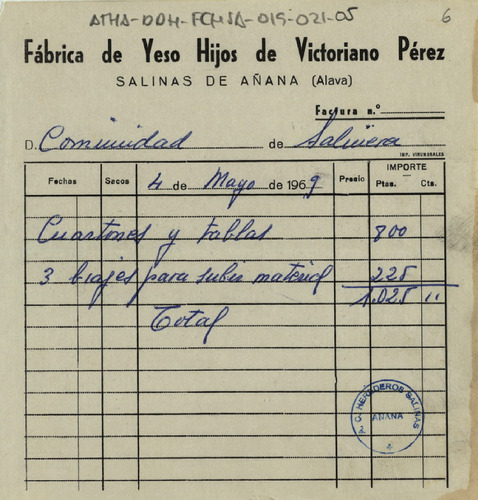 ATHA-DDH-FCHSA-019-021-05
6
Fábrica de Yeso Hijos de Victoriano Pérez
SALINAS DE AÑANA (Alava)
Factura n.º
D. Comunidad de Salinera
IMP. VIRUMBRALES
Fechas Sacos 4 de Mayo de 1969 Precio IMPORTE
Ptas. Cts.
Cuartones y tablas 800
3 biajes para subir material 225
Total 1.025 "
C. HEREDEROS SALINAS
AÑANA